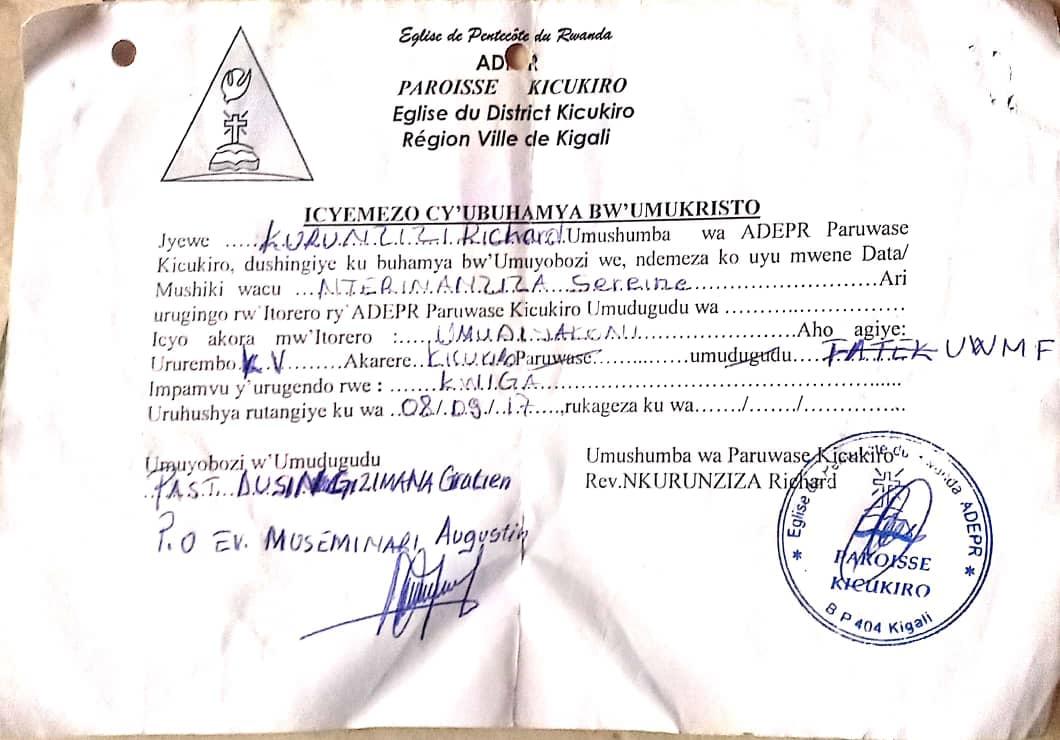 Eglise de Pentecôte du Rwanda
PAROISSE KICUKIRO
Eglise du District Kicukiro
Région Ville de Kigali
ICYEMEZO CY'UBUHAMYA BW'UMUKRISTO
Jyewe ..... KURUNZIZI Richard. Umushumba wa ADEPR Paruwase
Kicukiro, dushingiye ku buhamya bw'Umuyobozi we, ndemeza ko uyu mwene Data/
Mushiki wacu ... NTERINANZIZA Sereine ..............................Ari
urugingo rw'Itorero ry'ADEPR Paruwase Kicukiro Umudugudu wa .............................
Icyo akora mw'Itorero :.... ..........................Aho agiye:
Ururembo K.V.........Akarere..KICUKIRO Paruwase..................umudugudu....
Impamvu y'urugendo rwe : ........KWIGA.....................................................
Uruhushya rutangiye ku wa ..08/.09./..17.....,rukageza ku wa......./......./..............
Umuyobozi w'Umudugudu
PAST. DUSINGIZIMANA Gratien
P.O EV. MUSEMINARI Augustin
Umushumba wa Paruwase Kicukiro
Rev.NKURUNZIZA Richard
* Eglise de Pentecôte du Rwanda ADEPR *
PAROISSE
KICUKIRO
B P 404 Kigali